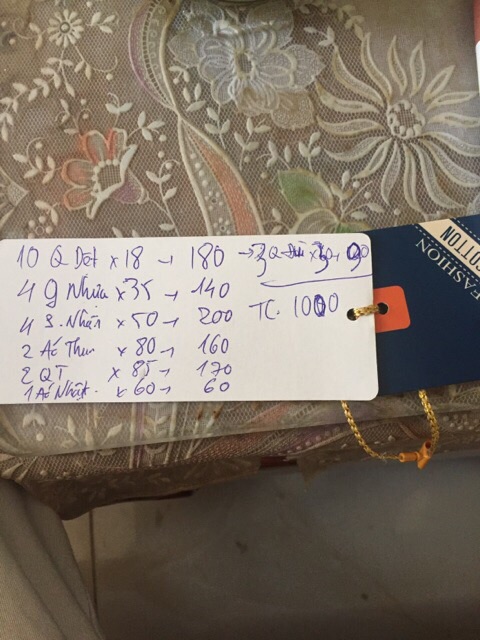 10 Q Dơt x 18 → 180 → 3 Q x 30 → 90
4 Q Nhừa x 35 → 140
TC. 1000
4 S. Nhận x 50 → 200
2 Áo Thun x 80 → 160
2 QT x 85 → 170
1 Áo Nhật. x 60 → 60
COTTON
FASHION